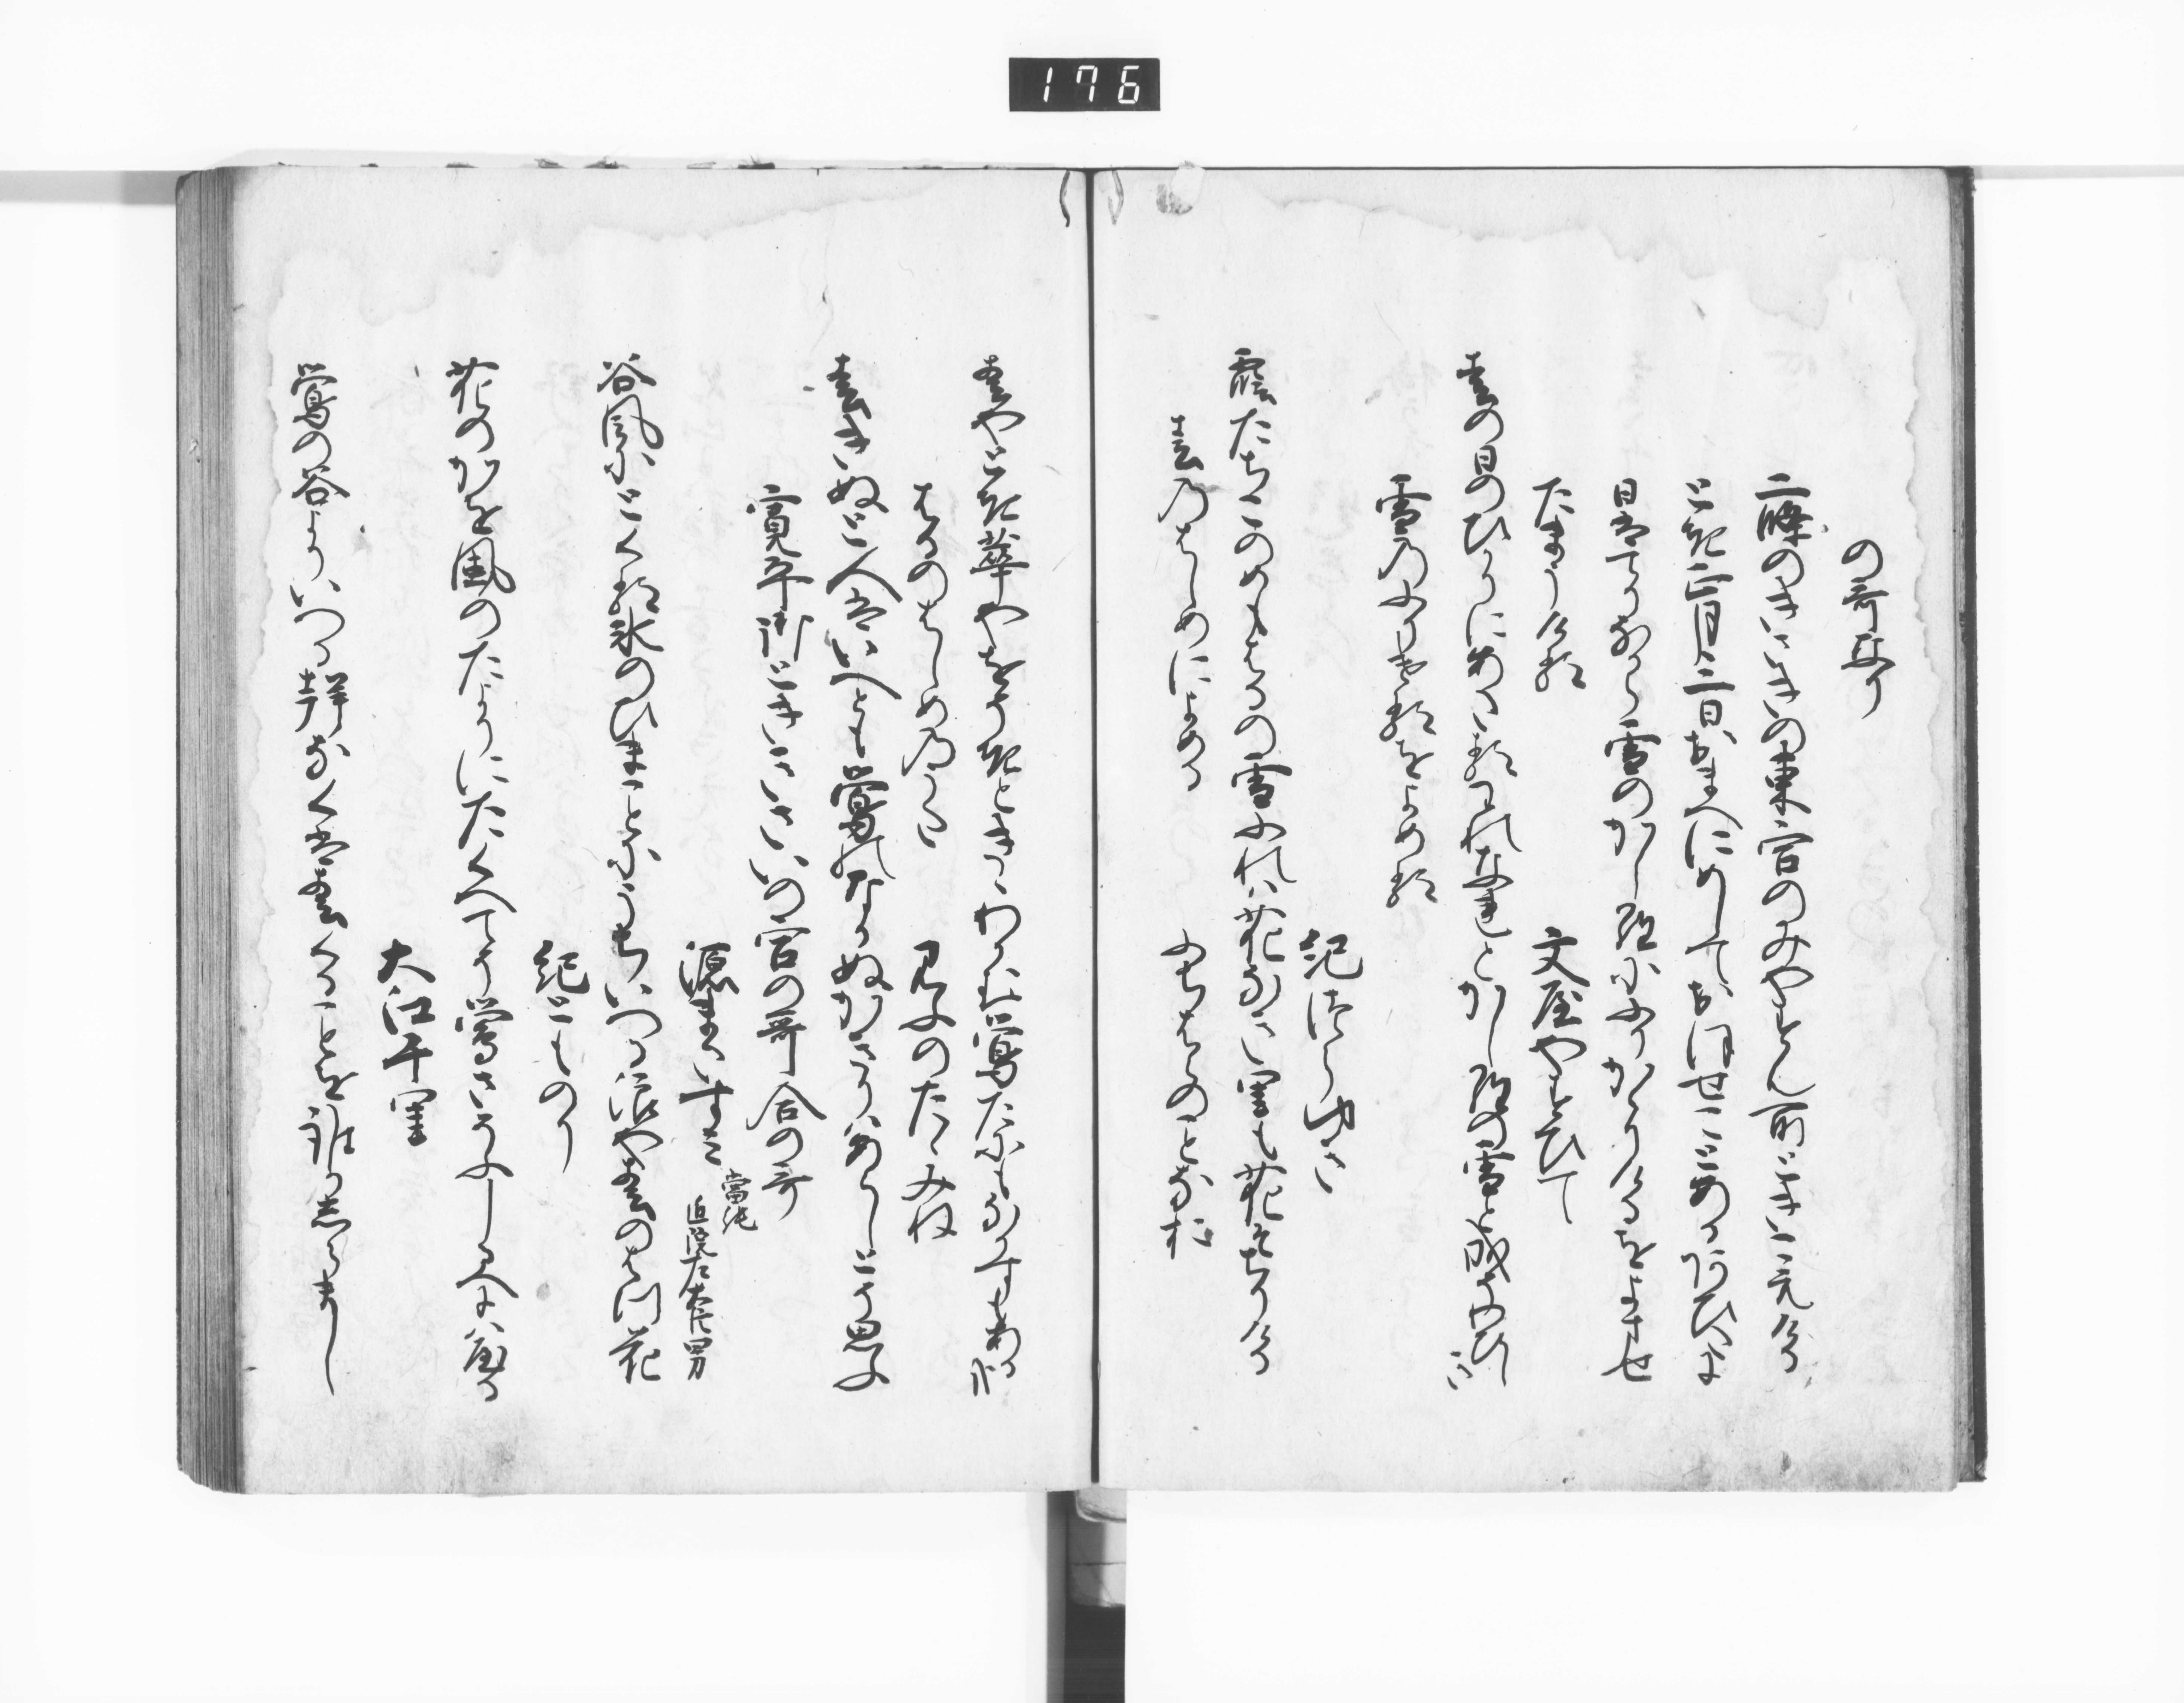 176
の哥なり
二條のきさきの東宮のみやすん所ときこえける
とき正月三日おまへにめしておほせことあるあひたに
日はてりなから雪のかしらにふりかゝりけるをよませ
たまひける
文屋やすひて
春の日のひかりにあたる我なれとかしらの雪と成そわひしき
雪のふりけるをよめる
紀つらゆき
霞たちこのめもはるの雪ふれは花なきさとも花そちりける
春のはしめによめる
ふちはらのことなほ
春やとき花やをそきときゝわかむ鶯たにもなかすもあるかな
はるのはしめのうた
みふのたゝみね
春きぬと人はいへとも鶯のなかぬかきりはあらしとそ思ふ
寛平御ときゝさいの宮の哥合の哥
源まさすみ
當純
近院右大臣男
谷風にとくる氷のひまことにうちいつる浪や春のはつ花
紀とものり
花のかを風のたよりにたくへてそ鶯さそふしるへには遣る
大江千里
鶯の谷よりいつる聲なくは春くることを誰かしらまし